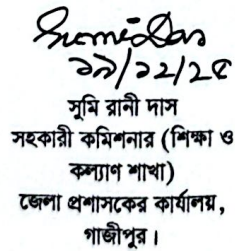 ১৯/১২/২৫
সুমি রানী দাস
সহকারী কমিশনার (শিক্ষা ও
কল্যাণ শাখা)
জেলা প্রশাসকের কার্যালয়,
গাজীপুর।